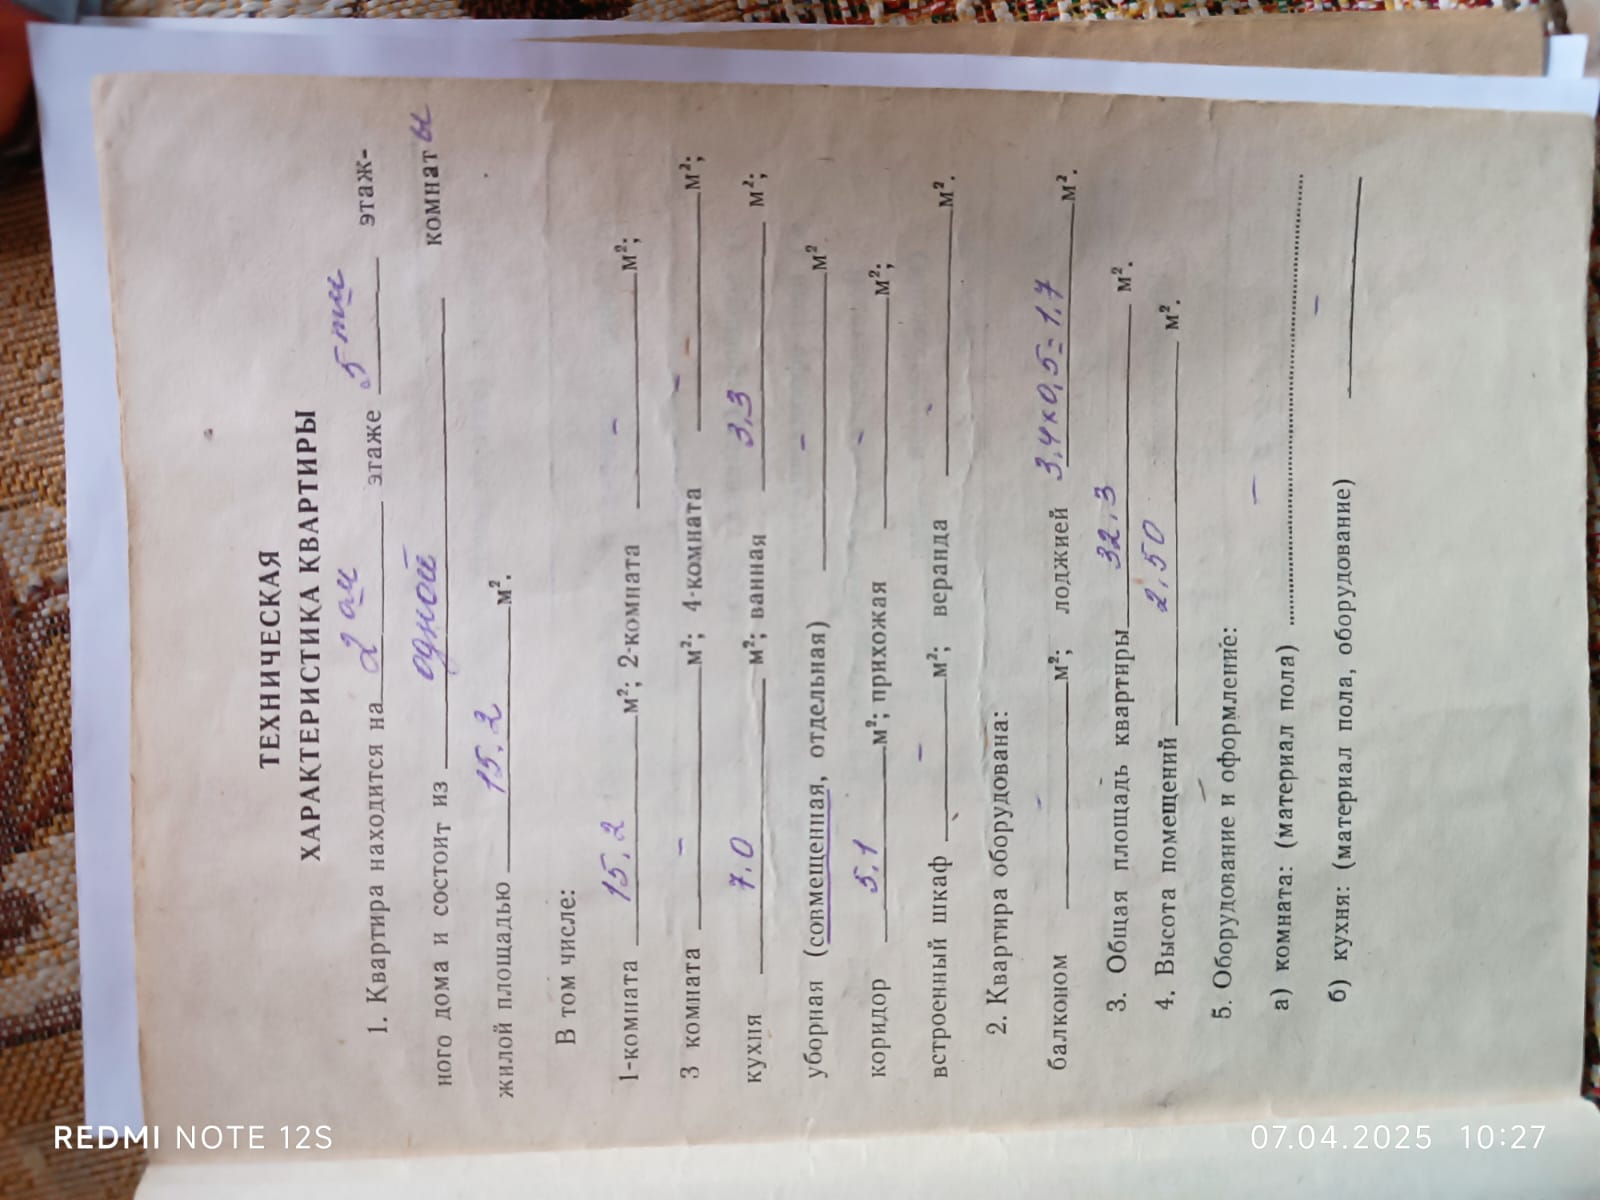 ТЕХНИЧЕСКАЯ
ХАРАКТЕРИСТИКА КВАРТИРЫ
1. Квартира находится на 2 ом этаже 5 ти этаж-
ного дома и состоит из одной комнаты
жилой площадью 15,2 м².
В том числе:
1-комната 15,2 м²; 2-комната - м²;
3 комната - м²; 4-комната - м²;
кухня 7,0 м²; ванная 3,3 м²;
уборная (совмещенная, отдельная) - м²
коридор 5,1 м²; прихожая - м²;
встроенный шкаф - м²; веранда - м².
2. Квартира оборудована:
балконом - м²; лоджией 3,4×0,5=1,7 м².
3. Общая площадь квартиры 32,3 м².
4. Высота помещений 2,50 м².
5. Оборудование и оформление:
а) комната: (материал пола) -
б) кухня: (материал пола, оборудование) -
REDMI NOTE 12S
07.04.2025 10:27